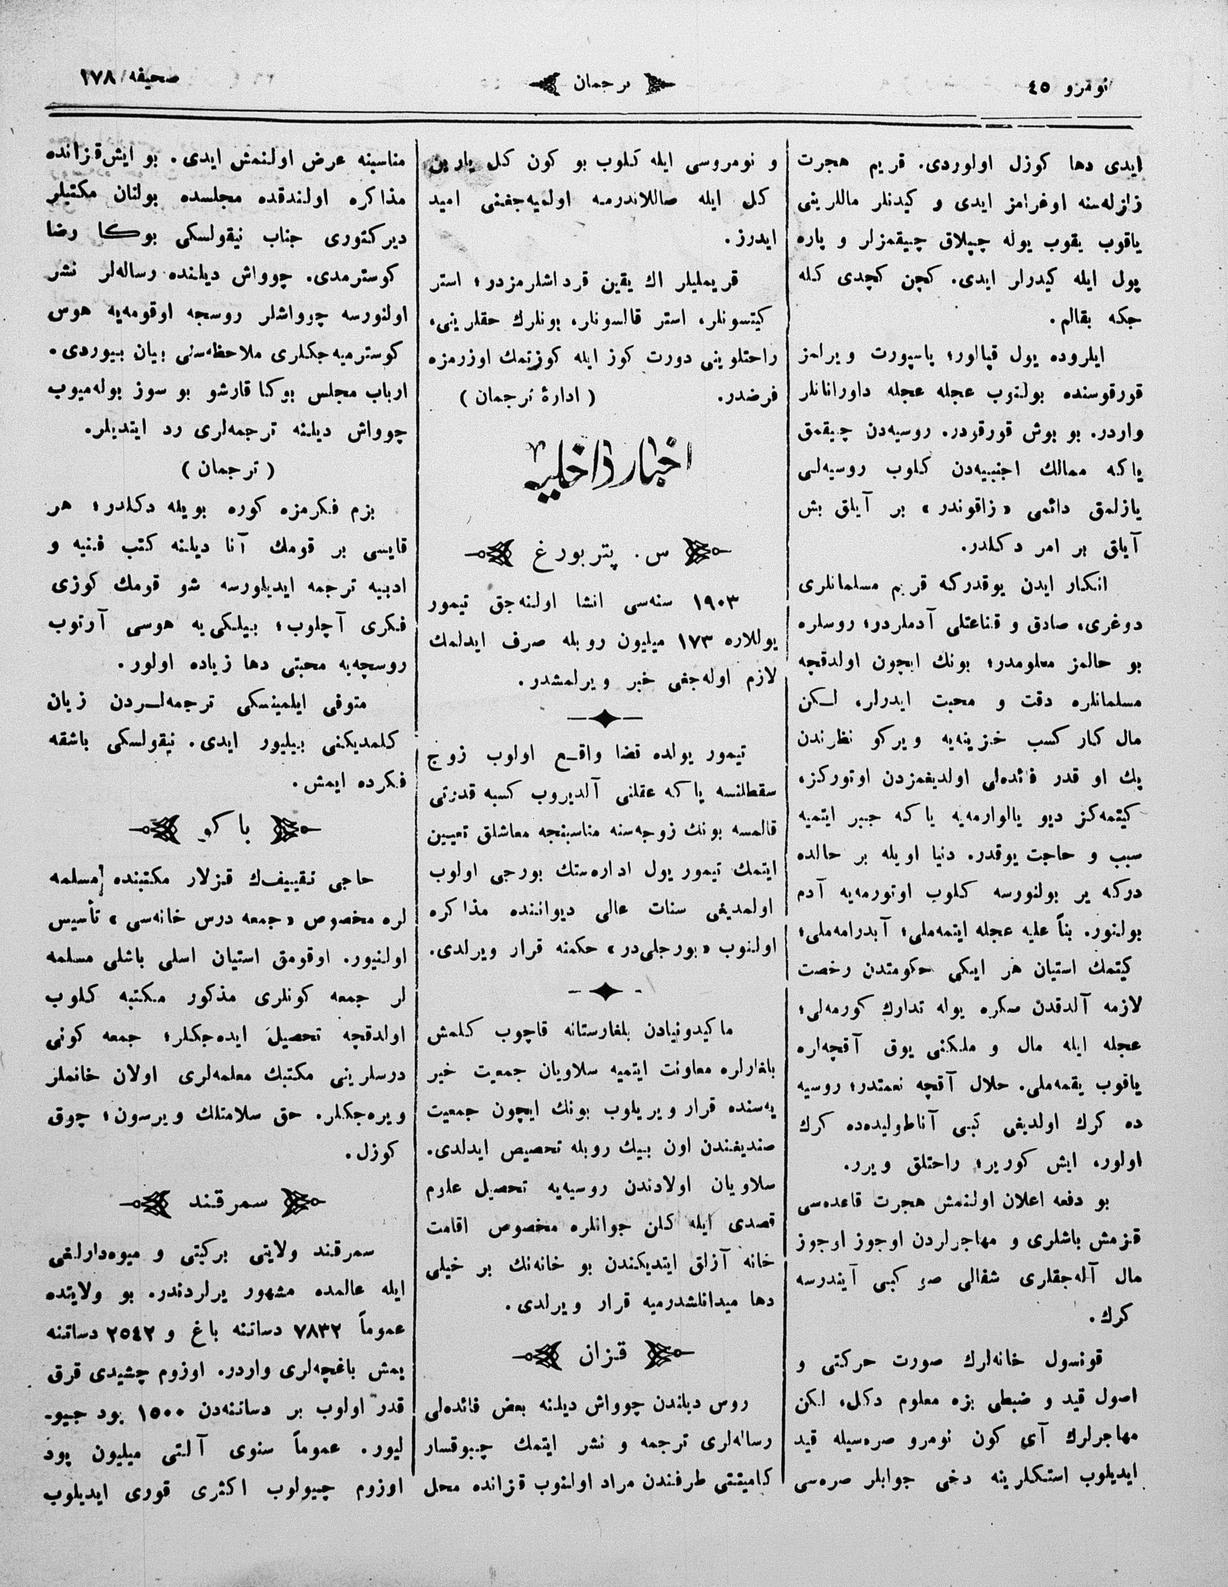 نومرو ٤٥
ترجمان
صحيفه ١٧٨
ايدى دها كوزل اولوردى. قريم هجرت
زلزله‌سنه اوغرامز ايدى و كيدنلر ماللرينى
ياقوب يقوب يوله چپلاق چيقمزلر و پاره
پول ايله كيدرلر ايدى. كچن كچدى كله
جكه بقالم.
ايلروده يول قپالور؛ پاسپورت ويرلمز
قورقوسنده بولنوب عجله عجله داورانانلر
واردر. بو بوش قورقودر. روسيه‌دن چيقمق
ياكه ممالك اجنبيه‌دن كلوب روسيه‌لى
يازلمق دائمى «زاقوندر» بر آيلق بش
آيلق بر امر دكلدر.
انكار ايدن يوقدركه قريم مسلمانلرى
دوغرى، صادق و قناعتلى آدملردر؛ روسلره
بو حالمز معلومدر؛ بونك ايچون اولدقچه
مسلمانلره دقت و محبت ايدرلر. لـكن
مال كار كسب خزينه‌يه ويركو نظرندن
پك او قدر فائده‌لى اولديغمزدن اوتوركز،
كيتمه‌كز ديو يالوارمه‌يه ياكه جبر ايتميه
سبب و حاجت يوقدر. دنيا اويله بر حالده
دركه ير بولنورسه كلوب اوتورمه‌يه آدم
بولنور. بناً عليه عجله ايتمه‌ملى؛ آبدرامه‌ملى؛
كيتمك استيان هر ايكى حكومتدن رخصت
لازمه آلدقدن صكره يوله تدارك كورمه‌لى؛
عجله ايله مال و ملكنى يوق آقچه‌اره
ياقوب يقمه‌ملى. حلال آقچه نعمتدر؛ روسيه
ده كرك اولديغى كبى آناطوليده‌ده كرك
اولور، ايش كورير؛ راحتلق ويرر.
بو دفعه اعلان اولنمش هجرت قاعده‌سى
قزمش باشلرى و مهاجرلردن اوجوز اوجوز
مال آله‌جقلرى شفالى صو كبى آيندرسه
كرك.
قونسول خانه‌لرك صورت حركتى و
اصول قيد و ضبطى بزه معلوم دكل، لكن
مهاجرلرك آى كون نومرو صره‌سيله قيد
ايديلوب استكلرينه دخى جوابلر صره‌سى
و نومروسى ايله كلوب بو كون كل يارين
كل ايله صاللاندرمه اولميه‌جغنى اميد
ايدرز.
قريمليلر اك يقين قرداشلرمزدر؛ استر
كيتسونلر، استر قالسونلر، بونلرك حقلرينى،
راحتلرينى دورت كوز ايله كوزتمك اوزرمزه
فرضدر. (ادارۀ ترجمان)
اخبار داخليه
س. پتربورغ
١٩٠٣ سنه‌سى انشا اولنه‌جق تيمور
يوللاره ١٧٣ ميليون روبله صرف ايدلمك
لازم اوله‌جغى خبر ويرلمشدر.
تيمور يولده قضا واقـع اولوب زوج
سقطلنسه ياكه عقلنى آلديروب كسبه قدرتى
قالمسه بونك زوجه‌سنه مناسبنجه معاشلق تعيين
ايتمك تيمور يول اداره‌ستك بورجى اولوب
اولمديغى سنات عالى ديواننده مذاكره
اولنوب «بورجلى‌در» حكمنه قرار ويرلدى.
ماكيدونيادن بلغارستانه قاچوب كلمش
بلغارلره معاونت ايتميه سلاويان جمعيت خير
يه‌سنده قرار ويريلوب بونك ايچون جمعيت
صنديغندن اون بيك روبله تخصيص ايدلدى.
سلاويان اولادندن روسيه‌يه تحصيل علوم
قصدى ايله كلن جوانلره مخصوص اقامت
خانه آزلق ايتديكندن بو خانه‌نك بر خيلى
دها ميدانلشدرميه قرار ويرلدى.
قزان
روس ديلندن چوواش ديلنه بعض فائده‌لى
رساله‌لرى ترجمه و نشر ايتمك چيبوقسار
كاميتتى طرفندن مراد اولنوب قزانده محل
مناسبنه عرض اولنمش ايدى. بو ايش قزانده
مذاكره اولندقده مجلسده بولنان مكتبلر
ديركتورى جناب نيقولسكى بوكا رضا
كوسترمدى. چوواش ديلنده رساله‌لر نشر
اولنورسه چوواشلر روسجه اوقومه‌يه هوس
كوسترميه‌جكلرى ملاحظه‌سنى بيان بيوردى.
ارباب مجلس بوكا قارشو بو سوز بوله‌ميوب
چوواش ديلنه ترجمه‌لرى رد ايتديلر.
(ترجمان)
بزم فكرمزه كوره بويله دكلدر؛ هر
قايسى بر قومك آنا ديلنه كتب فنيه و
ادبيه ترجمه ايديلورسه شو قومك كوزى
فكرى آچلوب؛ بيلكى‌يه هوسى آرتوب
روسچه‌يه محبتى دها زياده اولور.
متوفى ايلمينسكى ترجمه‌لـردن زيان
كلمديكنى بيليور ايدى. نيقولسكى باشقه
فكرده ايمش.
باكو
حاجى تقييفك قزلار مكتبنده مسلمه
لره مخصوص «جمعه درس خانه‌سى» تأسيس
اولنيور. اوقومق استيان اسلى باشلى مسلمه
لر جمعه كونلرى مذكور مكتبه كلوب
اولدقچه تحصيل ايده‌جكلر؛ جمعه كونى
درسلرينى مكتبك معلمه‌لرى اولان خانملر
ويره‌جكلر. حق سلامتلك ويرسون؛ چوق
كوزل.
سمرقند
سمرقند ولايتى بركتى و ميوه‌دارلغى
ايله عالمده مشهور يرلردندر. بو ولايتده
عموماً ٧٨٣٢ دساتنه باغ و ٢٥٤٢ دساتنه
يمش باغچه‌لرى واردر. اوزوم چشيدى قرق
قدر اولوب بر دساتنه‌دن ١٥٠٠ پود جيو-
ليور. عموماً سنوى آلتى ميليون پود
اوزوم جيولوب اكثرى قورى ايديلوب